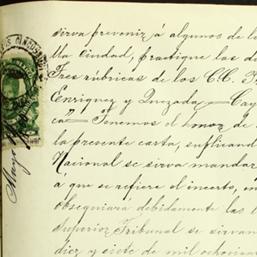 sirva prevenir á algunos de lo
tta ciudad, practique las di
Tres rúbricas de los CC.
Enriquez y Quezada
Tenemos el honor de
la presente carta, suplicand
Nacional se sirva mandar
á que se refiere el inserto, en
obsequiará debidamente las
Superior Tribunal se sirvan
diez y siete de mil ochocien
Mayo